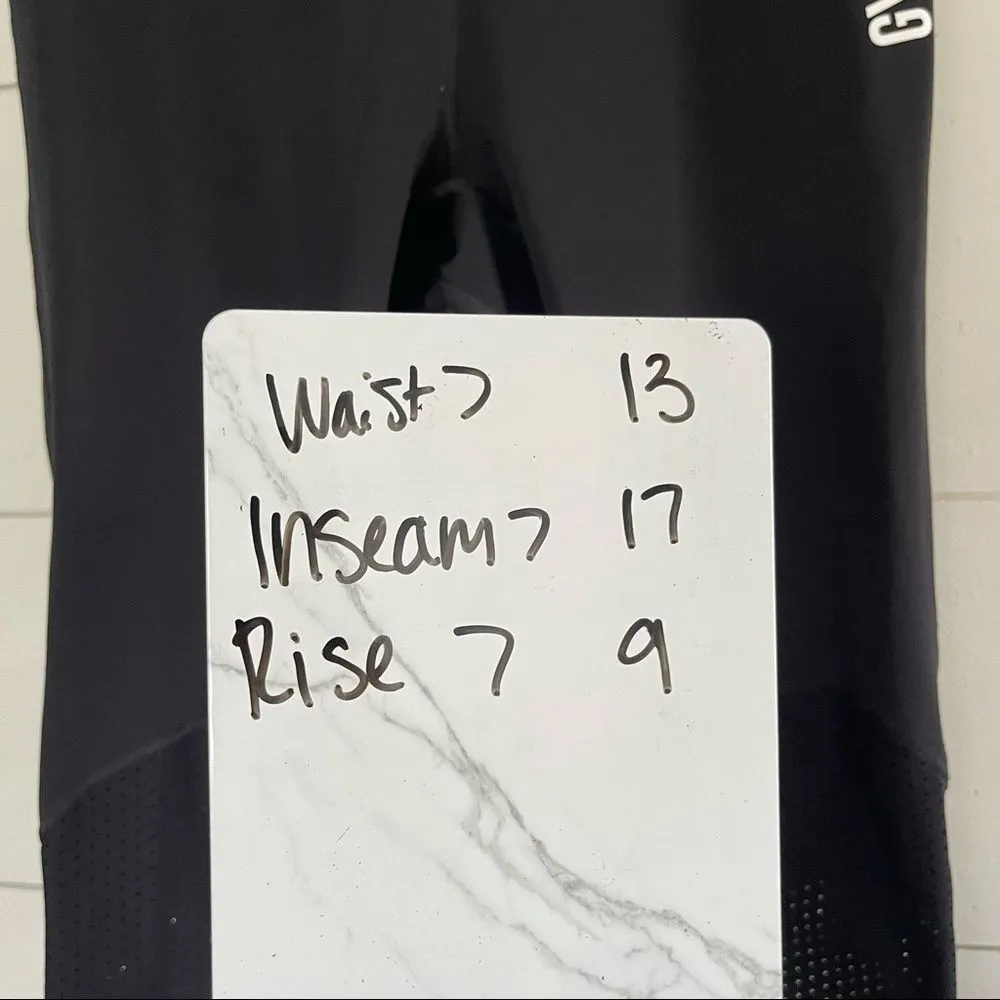 GY
Waist > 13
Inseam > 17
Rise > 9